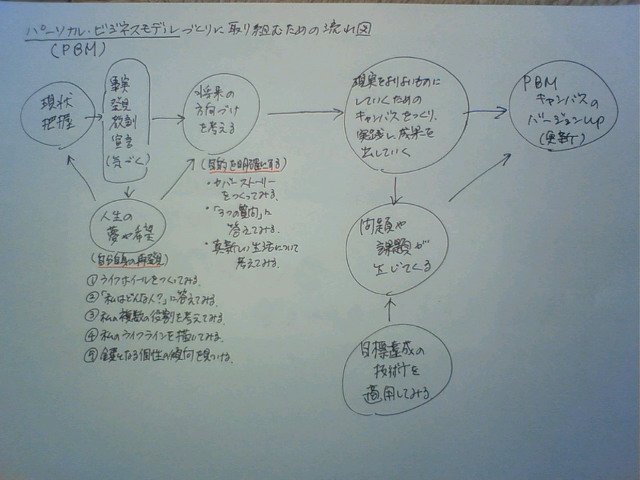 パーソナル・ビジネスモデルづくりに取り組むための流れ図
(PBM)
現状
把握
事実
発見
役割
宣言
(気づく)
将来の
方向づけ
を考える
現実をよりよいものに
していくための
キャンバスをつくり、
実践し、成果を
出していく。
PBM
キャンバスの
バージョンup
(更新)
人生の
夢や希望
(自分自身の再発見)
①ライフホイールをつくってみる。
②「私はどんな人?」に答えてみる。
③私の複数の役割を考えてみる。
④私のライフラインを描いてみる。
⑤鍵となる個性の傾向を見つける。
(目的を明確にする)
・カバーストーリー
をつくってみる。
・「3つの質問」に
答えてみる。
・真新しい生活について
考えてみる。
問題や
課題が
生じてくる
目標達成の
技術を
適用してみる